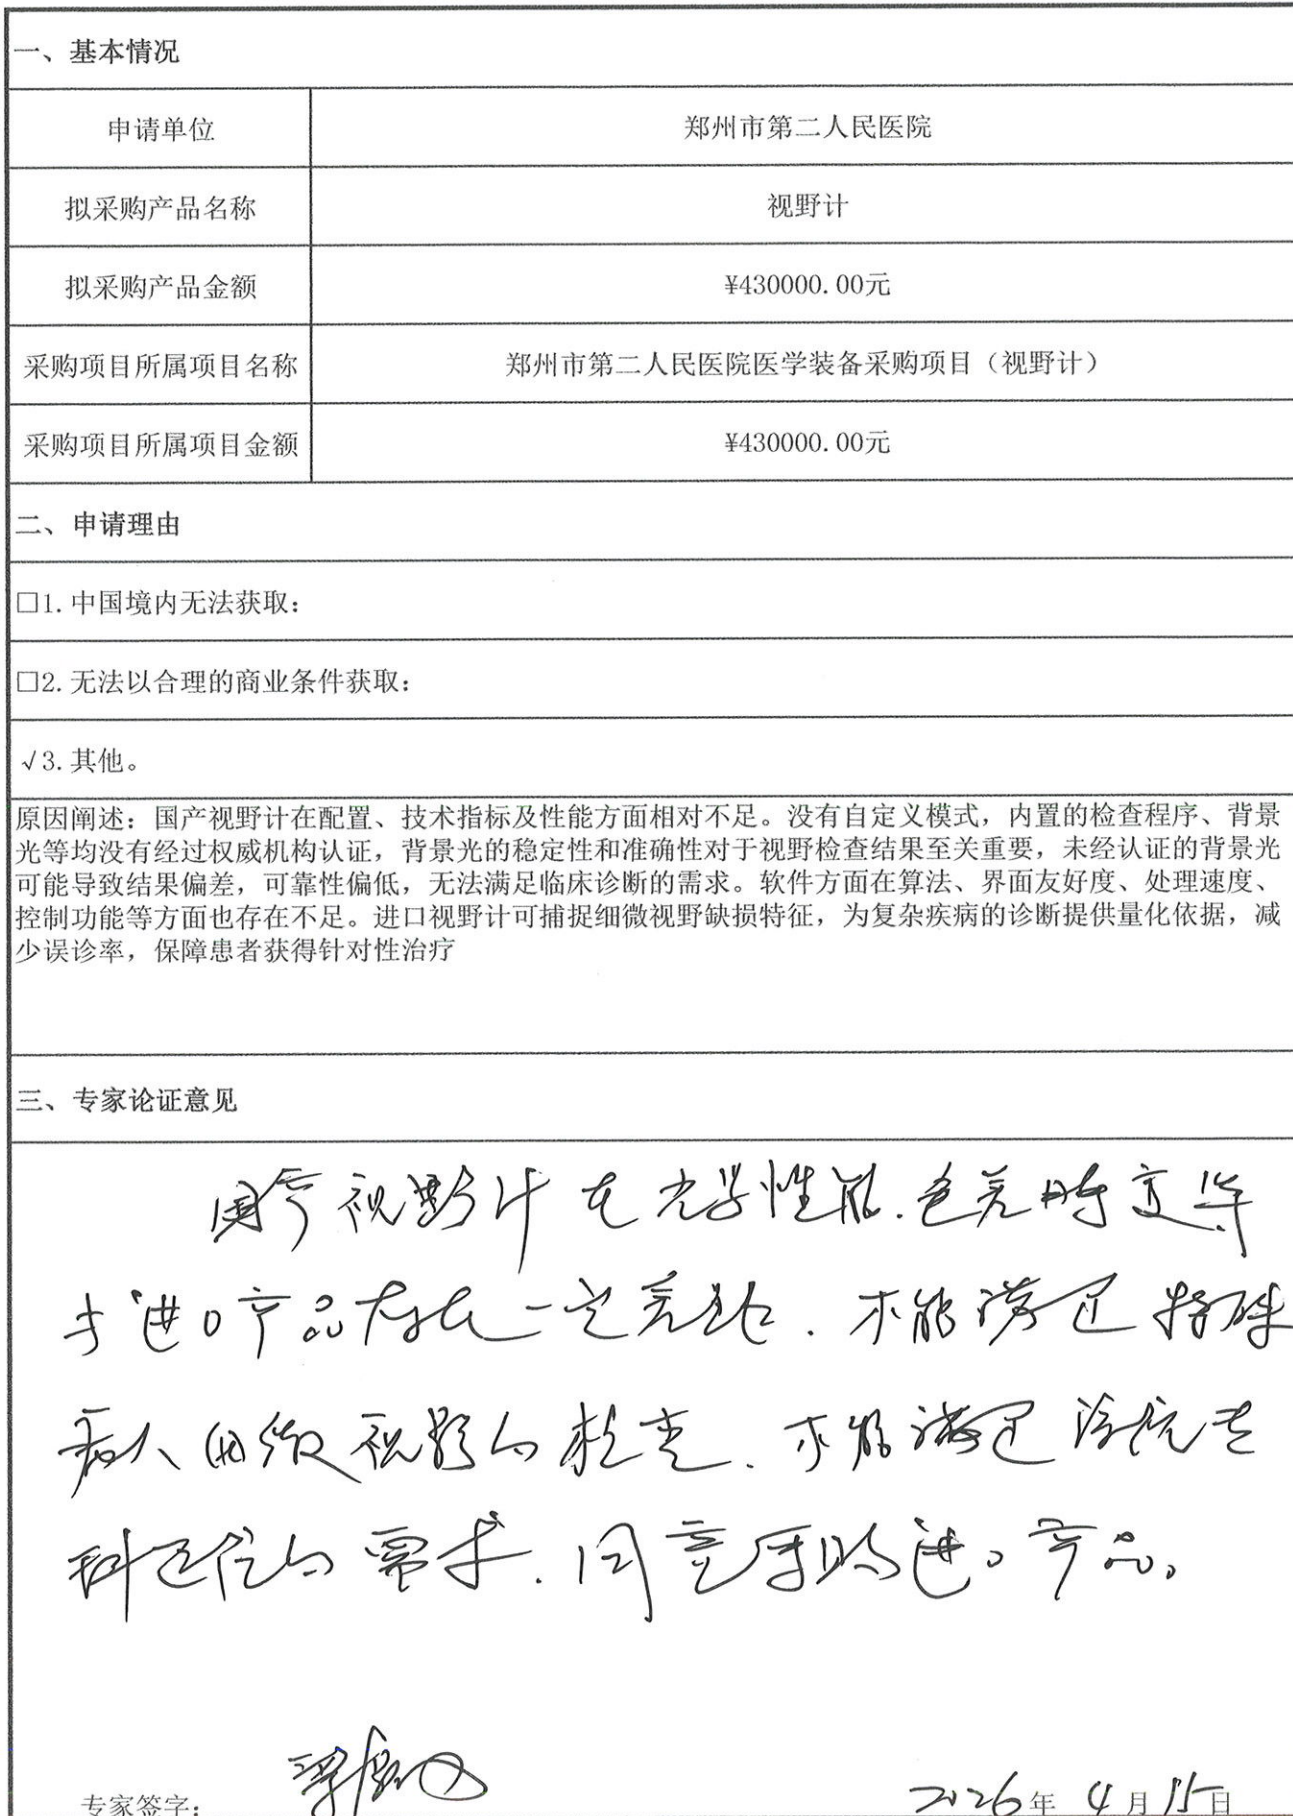 一、基本情况
申请单位 郑州市第二人民医院
拟采购产品名称 视野计
拟采购产品金额 ¥430000.00元
采购项目所属项目名称 郑州市第二人民医院医学装备采购项目（视野计）
采购项目所属项目金额 ¥430000.00元
二、申请理由
□1.中国境内无法获取：
□2.无法以合理的商业条件获取：
√3.其他。
原因阐述：国产视野计在配置、技术指标及性能方面相对不足。没有自定义模式，内置的检查程序、背景
光等均没有经过权威机构认证，背景光的稳定性和准确性对于视野检查结果至关重要，未经认证的背景光
可能导致结果偏差，可靠性偏低，无法满足临床诊断的需求。软件方面在算法、界面友好度、处理速度、
控制功能等方面也存在不足。进口视野计可捕捉细微视野缺损特征，为复杂疾病的诊断提供量化依据，减
少误诊率，保障患者获得针对性治疗
三、专家论证意见
国产视野计在光学性能.色差
与进口产品存在一定差距.不能满足特殊
病人细微视野的检查.不能满足该院专
科定位的需求.同意采购进口产品。
专家签字： 2026年4月15日